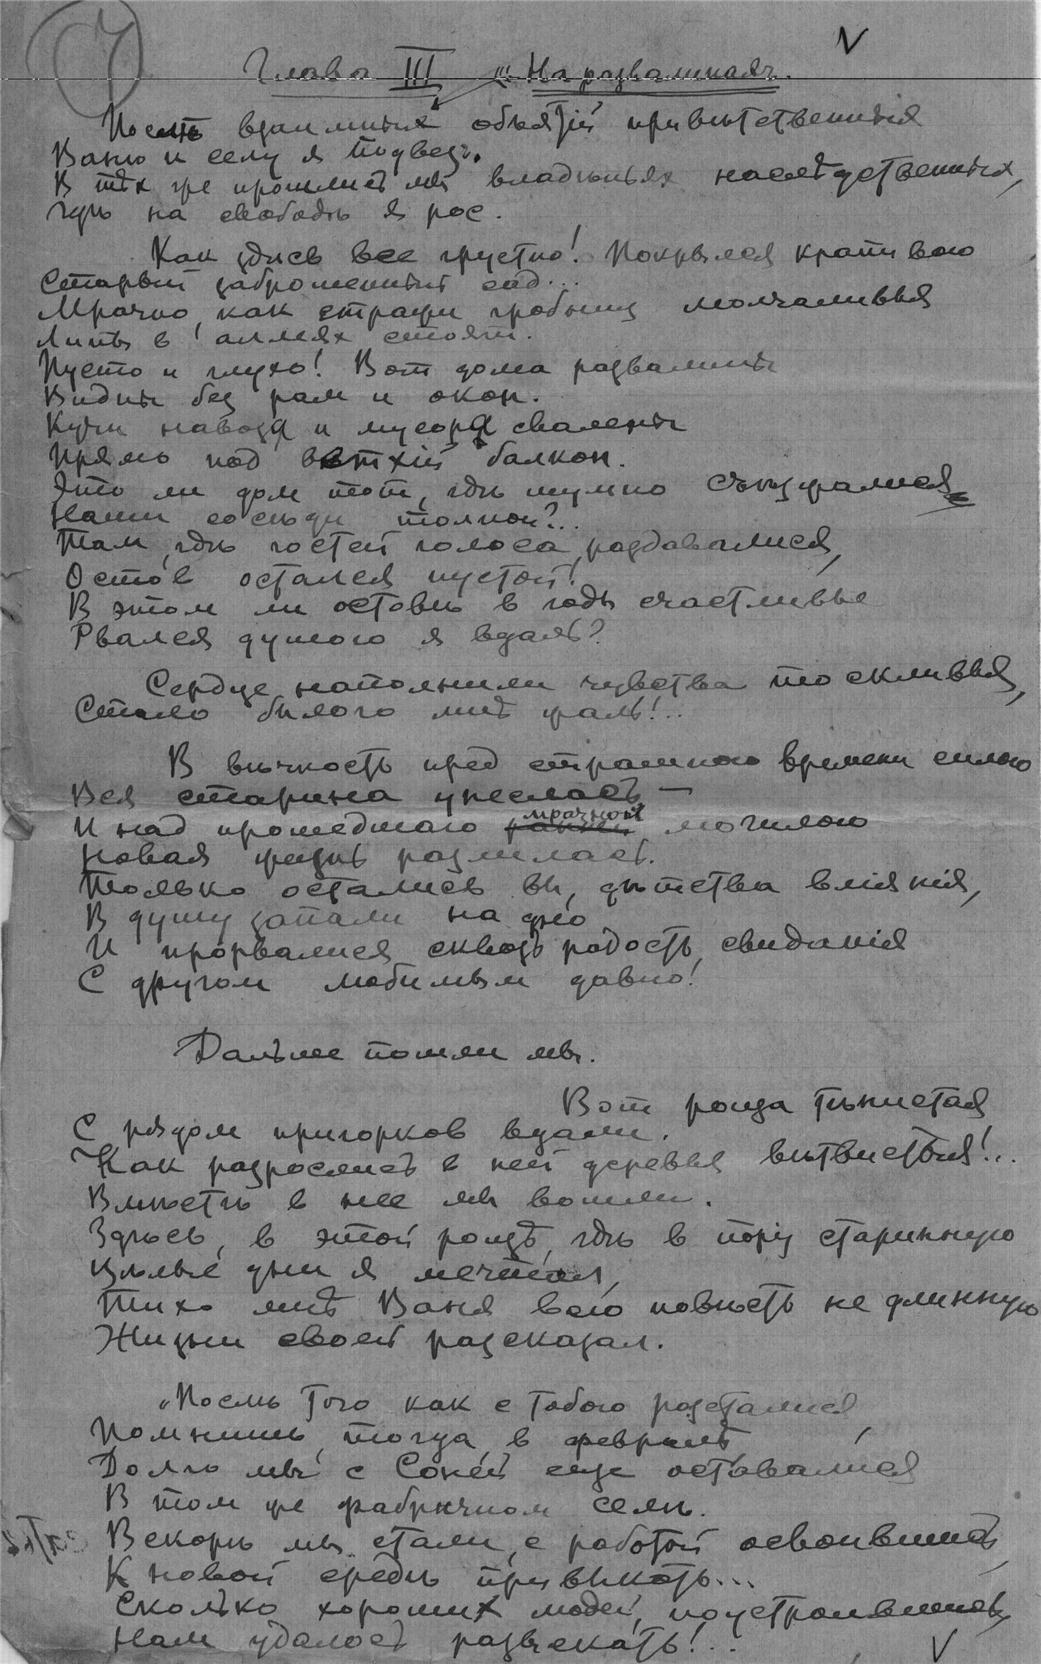 Глава III "На развалинах".
Послѣ взаимных объятій привѣтственных
Ваню к селу я подвез.
В тѣх же прошлись мы владѣньях наслѣдственных,
Гдѣ на свободѣ я рос.
Как здѣсь все грустно! Покрылся крапивою
Старый заброшенный сад...
Мрачно, как стражи гробниц молчаливыя
Липы в аллеях стоят.
Пусто и глухо! Вот дома развалины
Видны без рам и окон.
Кучи навоза и мусора свалены
Прямо под ветхій балкон.
Это ли дом тот, гдѣ шумно съѣзжалися
Наши сосѣди толпой?..
Там, гдѣ гостей голоса раздавалися,
Остов остался пустой!
В этом ли остовѣ в годы счастливые
Рвался душою я вдаль?
Сердце наполнили чувства тоскливыя,
Стало былого мнѣ жаль!..
В вѣчность пред страшною времени силою
Вся старина унеслась —
И над прошедшаго мрачной могилою
Новая жизнь разлилась.
Только остались вы, дѣтства вліянія,
В душу запали на дно
И прорвалися сквозь радость свиданія
С другом любимым давно!
Дальше пошли мы.
Вот роща тѣнистая
С рядом пригорков вдали.
Как разрослись в ней деревья вѣтвистыя!..
Вмѣстѣ в нее мы вошли.
Здѣсь, в этой рощѣ, гдѣ в пору старинную
Цѣлые дни я мечтал,
Тихо мнѣ Ваня всю повѣсть не длинную
Жизни своей разсказал.
"Послѣ того как с тобою разсталися
Помнишь, тогда, в февралѣ,
Долго мы с Соней еще оставалися
В том же фабричном селѣ.
Вскорѣ мы стали, с работой освоившись,
К новой средѣ привыкать...
Сколько хороших людей, поустроившись,
Нам удалось разыскать!..